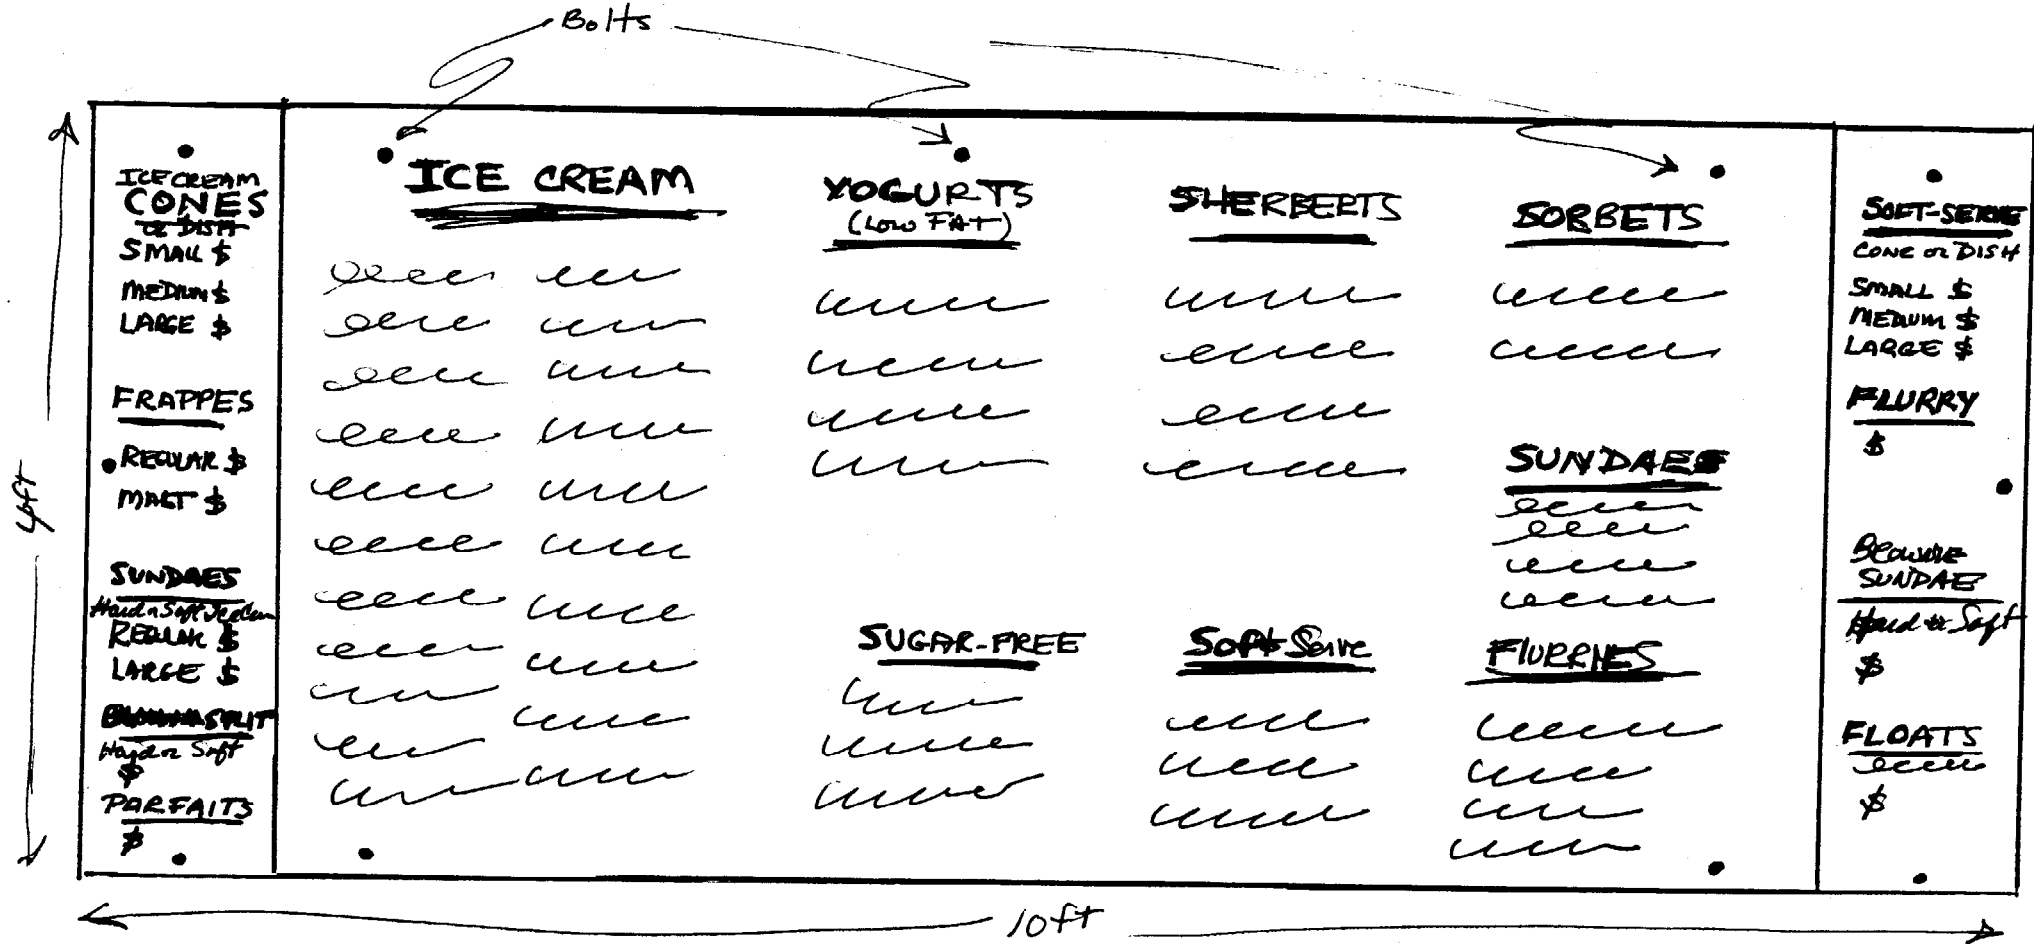 Bolts
ICE CREAM
CONES
OR DISH
SMALL $
MEDIUM $
LARGE $
FRAPPES
REGULAR $
MALT $
SUNDAES
Hard or Soft Ice Cream
REGULAR $
LARGE $
BANANA SPLIT
Hard or Soft
$
PARFAITS
$
ICE CREAM
YOGURTS
(LOW FAT)
SUGAR-FREE
SHERBERTS
Soft Serve
SORBETS
SUNDAES
FLURRIES
SOFT-SERVE
CONE OR DISH
SMALL $
MEDIUM $
LARGE $
FLURRY
$
BROWNIE
SUNDAE
Hard or Soft
$
FLOATS
$
4ft
10ft